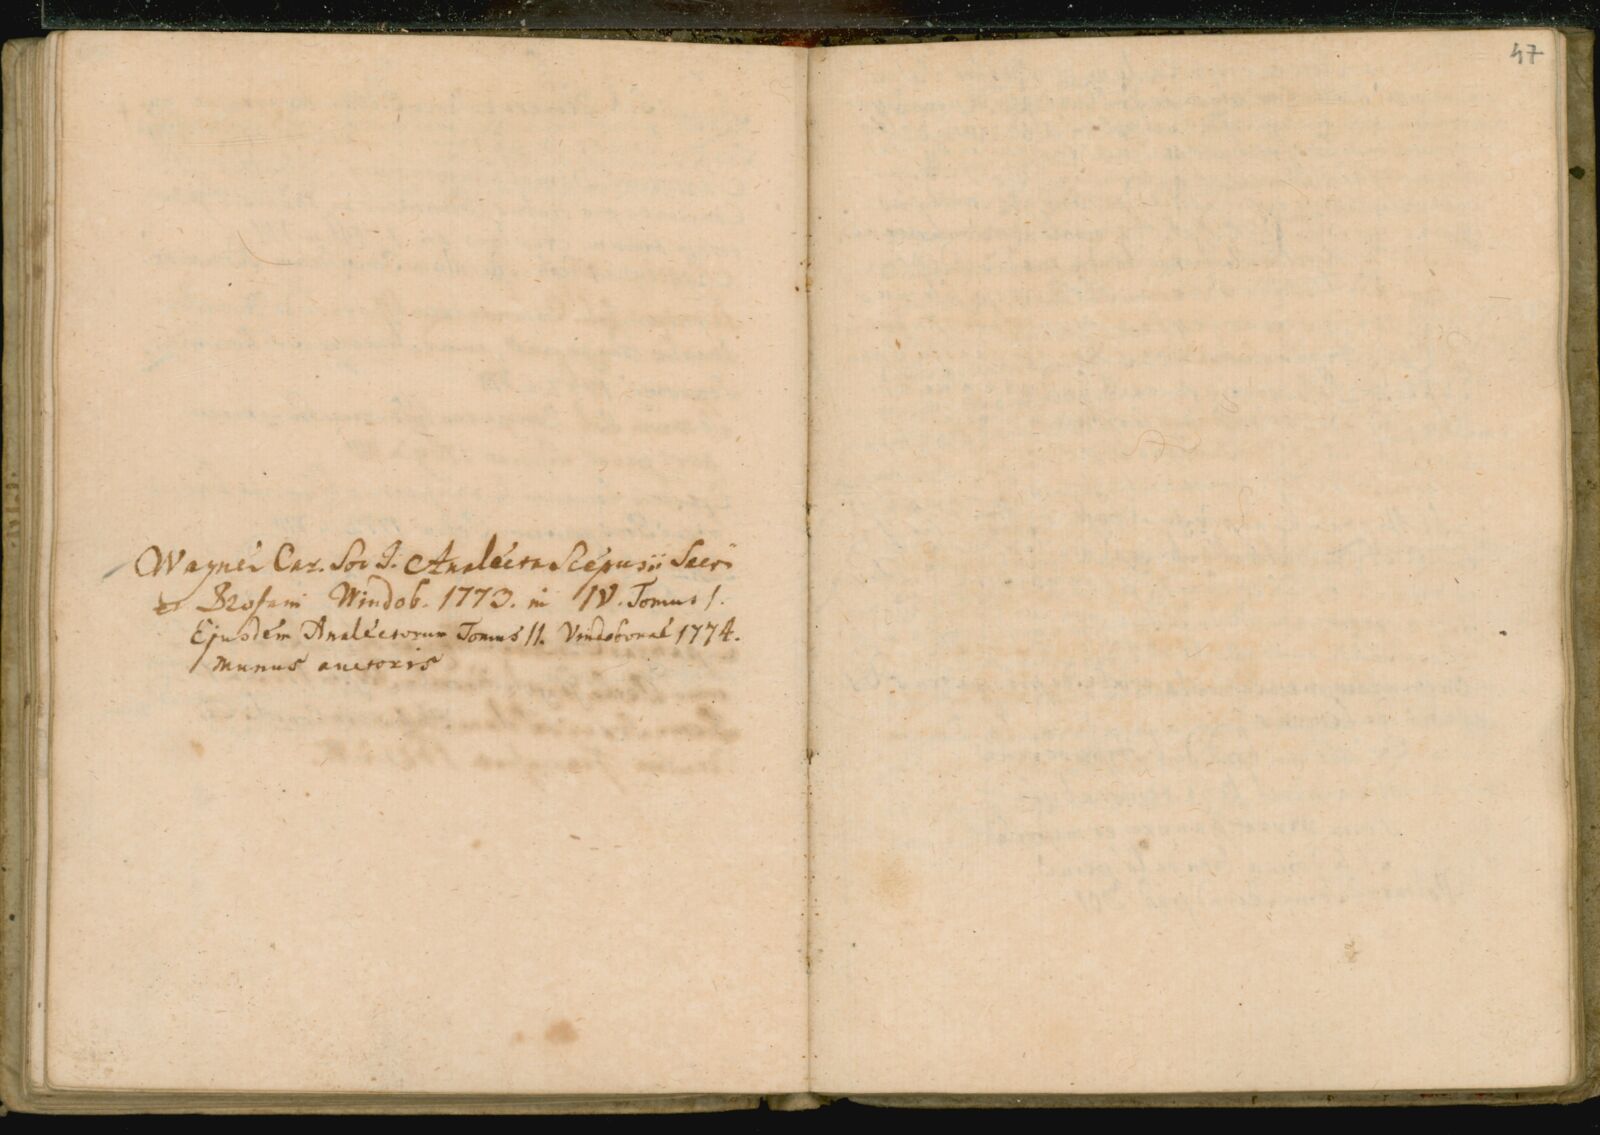 47
Wagner Car. Soc J. Analecta Scepusii Sacri
et Profani Windob. 1773. in IV. Tomus I.
Ejusdem Analectorum Tomus II. Vindobonae 1774.
munus auctoris